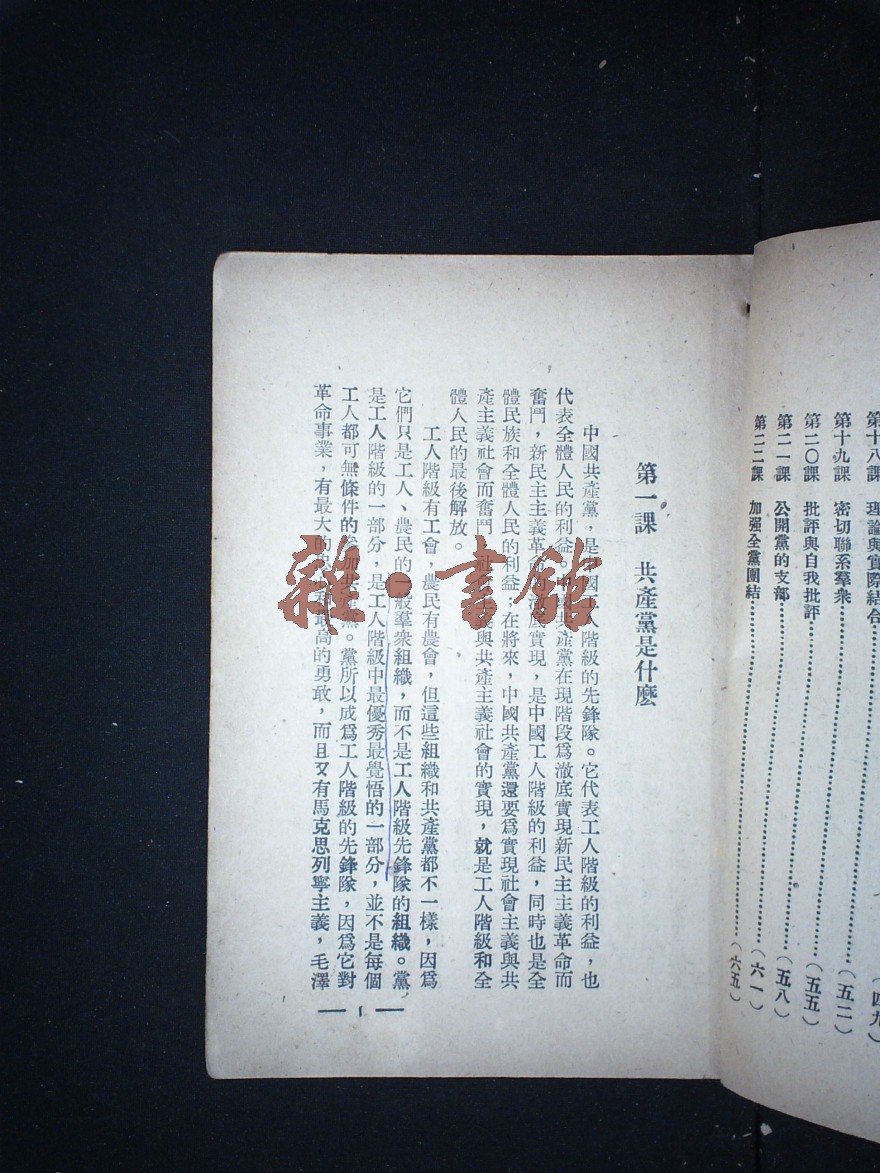 第十八課　理論與實際結合………………（四九）
第十九課　密切聯系羣衆………………（五二）
第二〇課　批評與自我批評………………（五五）
第二一課　公開黨的支部………………（五八）
第二二課　加强全黨團結………………（六一）
………………（六五）
第一課　共產黨是什麽
中國共產黨，是中國工人階級的先鋒隊。它代表工人階級的利益，也
代表全體人民的利益。中國共產黨在現階段爲澈底實現新民主主義革命而
奮鬥，新民主主義革命的澈底實現，是中國工人階級的利益，同時也是全
體民族和全體人民的利益；在將來，中國共產黨還要爲實現社會主義與共
產主義社會而奮鬥，社會主義與共產主義社會的實現，就是工人階級和全
體人民的最後解放。
工人階級有工會，農民有農會，但這些組織和共產黨都不一樣，因爲
它們只是工人、農民的一般羣衆組織，而不是工人階級先鋒隊的組織。黨
是工人階級的一部分，是工人階級中最優秀最覺悟的一部分，並不是每個
工人都可無條件的參加共產黨。黨所以成爲工人階級的先鋒隊，因爲它對
革命事業，有最大的忠心和最高的勇敢，而且又有馬克思列寧主義，毛澤
— 1 —
雜·書館